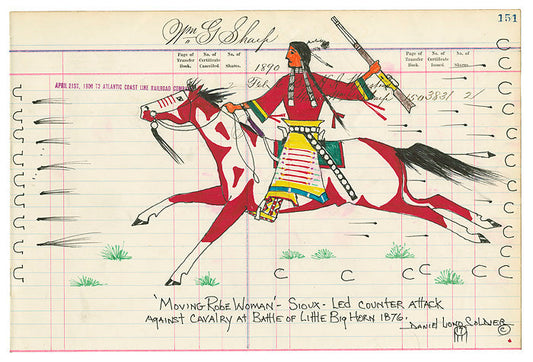 151
Wm G Sharp
Page of Transfer Book.
No. of Certificate Cancelled.
No. of Shares.
Page of Transfer Book.
No. of Certificate Issued.
No. of Shares.
1890
Feb
3831 21
APRIL 21ST, 1900 TO ATLANTIC COAST LINE RAILROAD
'MOVING ROBE WOMAN' - SIOUX - LED COUNTER ATTACK
AGAINST CAVALRY AT BATTLE OF LITTLE BIG HORN 1876.
DANIEL LONG SOLDIER ©